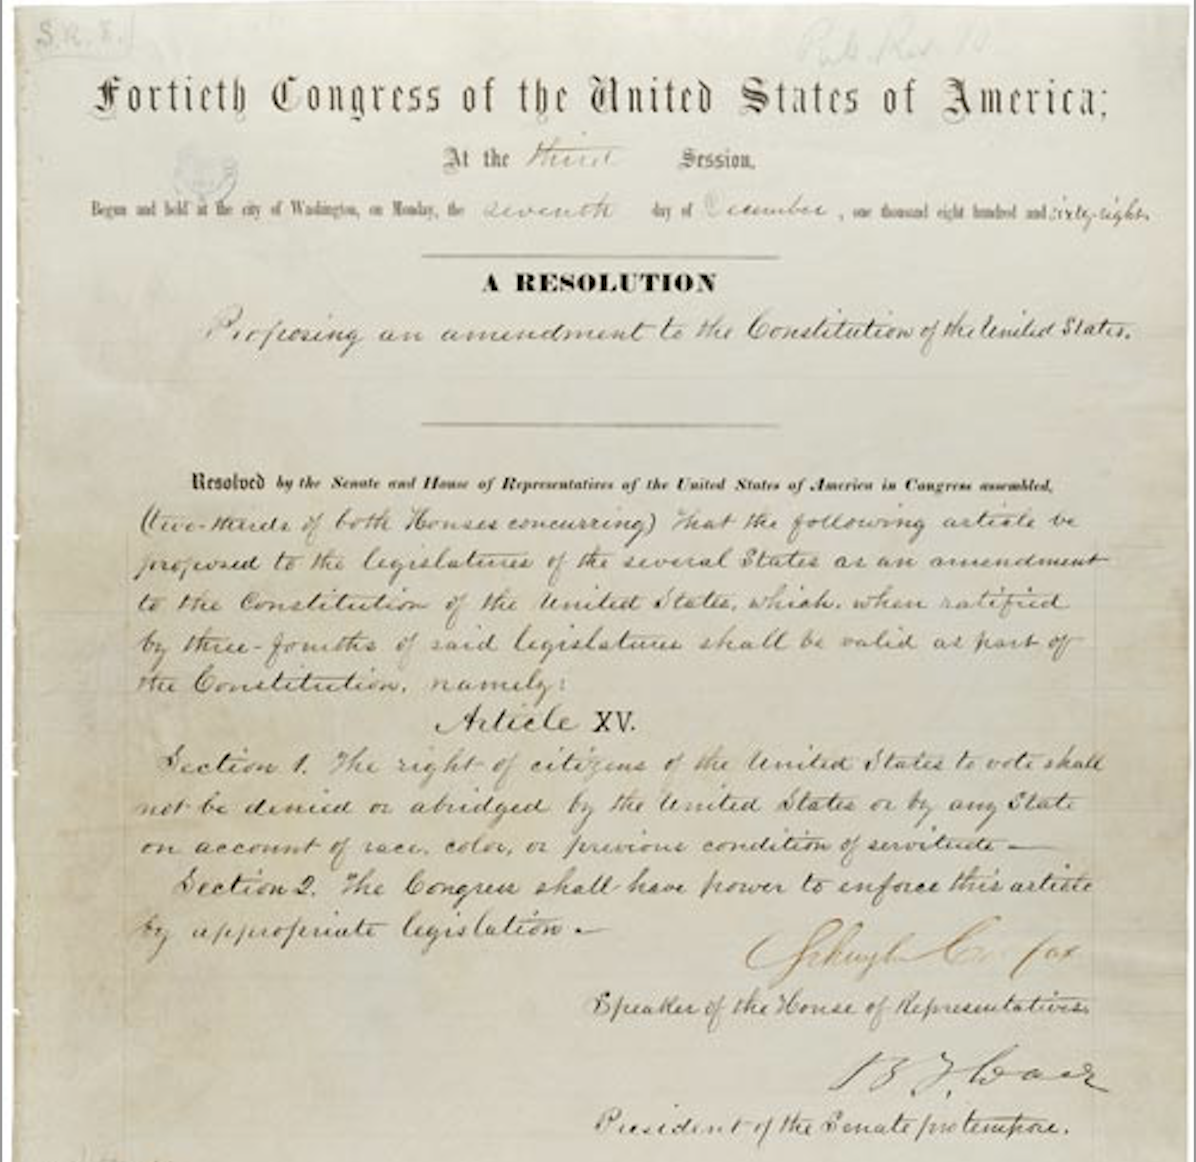 S.R. 8.
Pub. Res 10
Fortieth Congress of the United States of America;
At the third Session,
Begun and held at the city of Washington, on Monday, the seventh day of December, one thousand eight hundred and sixty-eight.
A RESOLUTION
Proposing an amendment to the Constitution of the United States.
Resolved by the Senate and House of Representatives of the United States of America in Congress assembled,
(two-thirds of both Houses concurring) That the following article be
proposed to the legislatures of the several States as an amendment
to the Constitution of the United States, which, when ratified
by three-fourths of said legislatures shall be valid as part of
the Constitution, namely:
Article XV.
Section 1. The right of citizens of the United States to vote shall
not be denied or abridged by the United States or by any State
on account of race, color, or previous condition of servitude —
Section 2. The Congress shall have power to enforce this article
by appropriate legislation —
Schuyler Colfax
Speaker of the House of Representatives.
B F Wade
President of the Senate pro tempore.